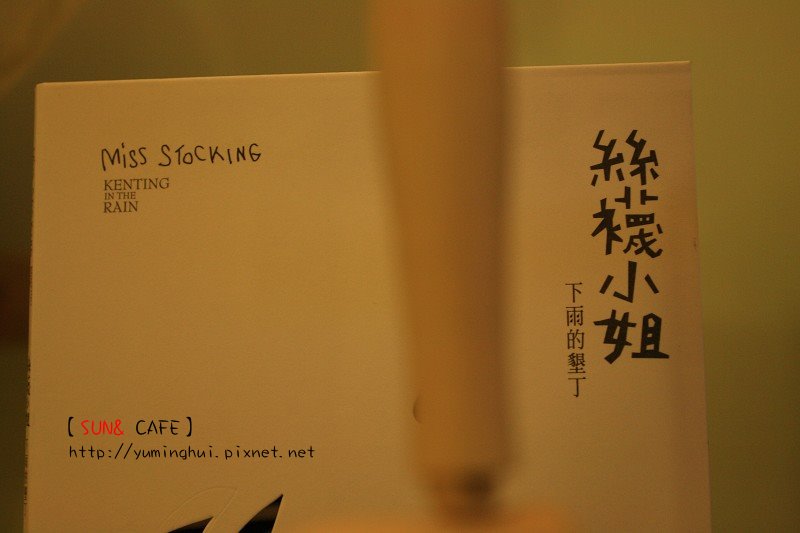 Miss STOCKING
KENTING
IN THE
RAIN
絲襪小姐
下雨的墾丁
【 SUN& CAFE 】
http://yuminghui.pixnet.net